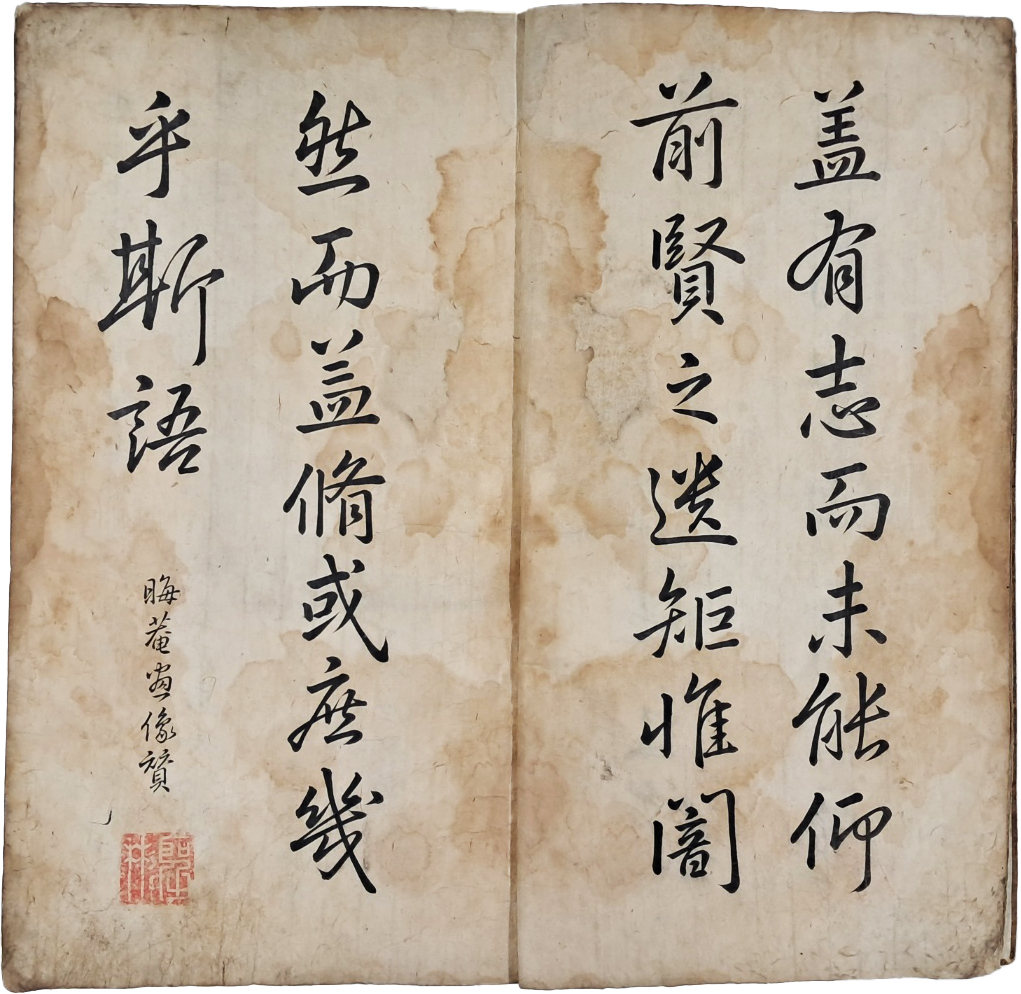 盖有志而未能仰
前賢之遗矩惟闇
然而益脩或庶幾
乎斯語
晦菴畫像贊